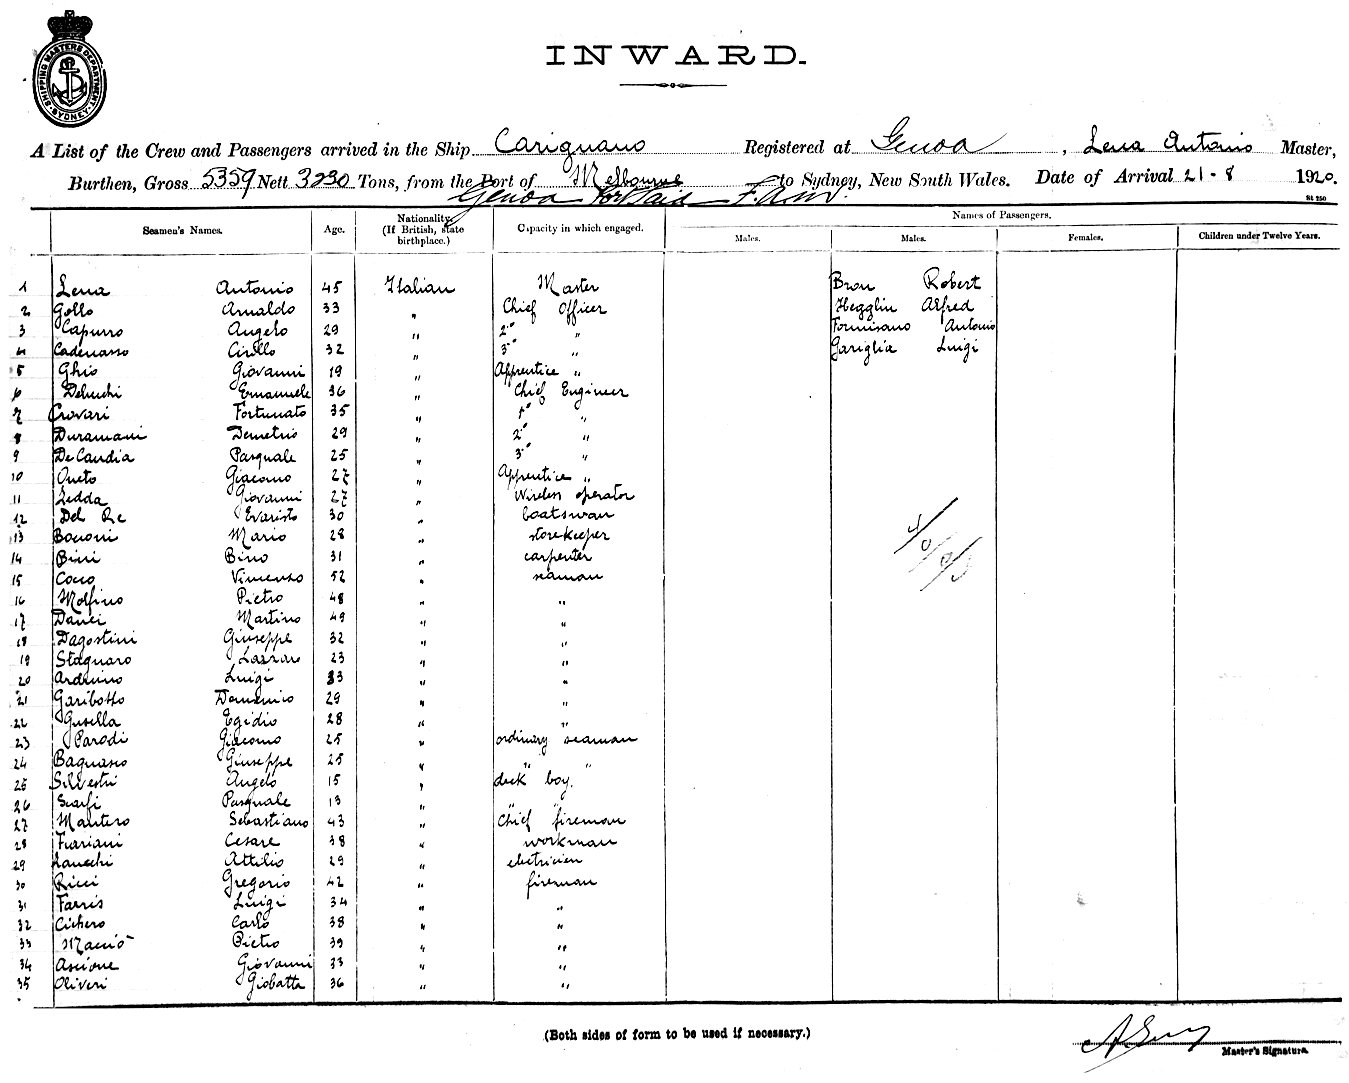 SHIPPING MASTERS DEPARTMENT. SYDNEY.
INWARD.
A List of the Crew and Passengers arrived in the Ship Carignano Registered at Genoa, Lena Antonio Master,
Burthen, Gross 5359 Nett 3230 Tons, from the Port of Melbourne to Sydney, New South Wales. Date of Arrival 21-8 1920.
Genoa Port Said
St 250
Seamen's Names. Age. Nationality. (If British, state birthplace.) Capacity in which engaged. Names of Passengers.
Males. Males. Females. Children under Twelve Years.
1 Lena Antonio 45 Italian Master Robert
2 Gollo Arnaldo 33 " Chief Officer Hegglin Alfred
3 Capurro Angelo 29 " 2° " Formisano Antonio
4 Cadenasso Cirillo 32 " 3° " Gariglia Luigi
5 Ghio Giovanni 19 " Apprentice "
6 Delucchi Emanuele 36 " Chief Engineer
7 Crovari Fortunato 35 " 1° "
8 Duramani Demetrio 29 " 2° "
9 De Candia Pasquale 25 " 3° "
10 Oneto Giacomo 27 " Apprentice "
11 Ledda Giovanni 27 " Wireless operator
12 Del Re Evaristo 30 " boatswan
13 Bononi Mario 28 " storekeeper
14 Bini Bino 31 " carpenter
15 Cocco Vincenzo 52 " seaman
16 Molfino Pietro 48 " "
17 Danei Martino 49 " "
18 Dagostini Giuseppe 32 " "
19 Stagnaro Lazzaro 23 " "
20 Arduino Luigi 33 " "
21 Garibotto Domenico 29 " "
22 Gusella Egidio 28 " "
23 Parodi Giacomo 25 " ordinary seaman
24 Bagnasco Giuseppe 25 " " "
25 Silvestri Angelo 15 " deck boy.
26 Scarfi Pasquale 13 " " "
27 Mantero Sebastiano 43 " Chief fireman
28 Cesare 38 " workman
29 Attilio 29 " electricien
30 Ricci Gregorio 42 " fireman
31 Farris Luigi 34 " "
32 Cichero Carlo 38 " "
33 Macciò Pietro 39 " "
34 Ascione Giovanni 33 " "
35 Oliveri Giobatta 36 " "
(Both sides of form to be used if necessary.)
Master's Signature.